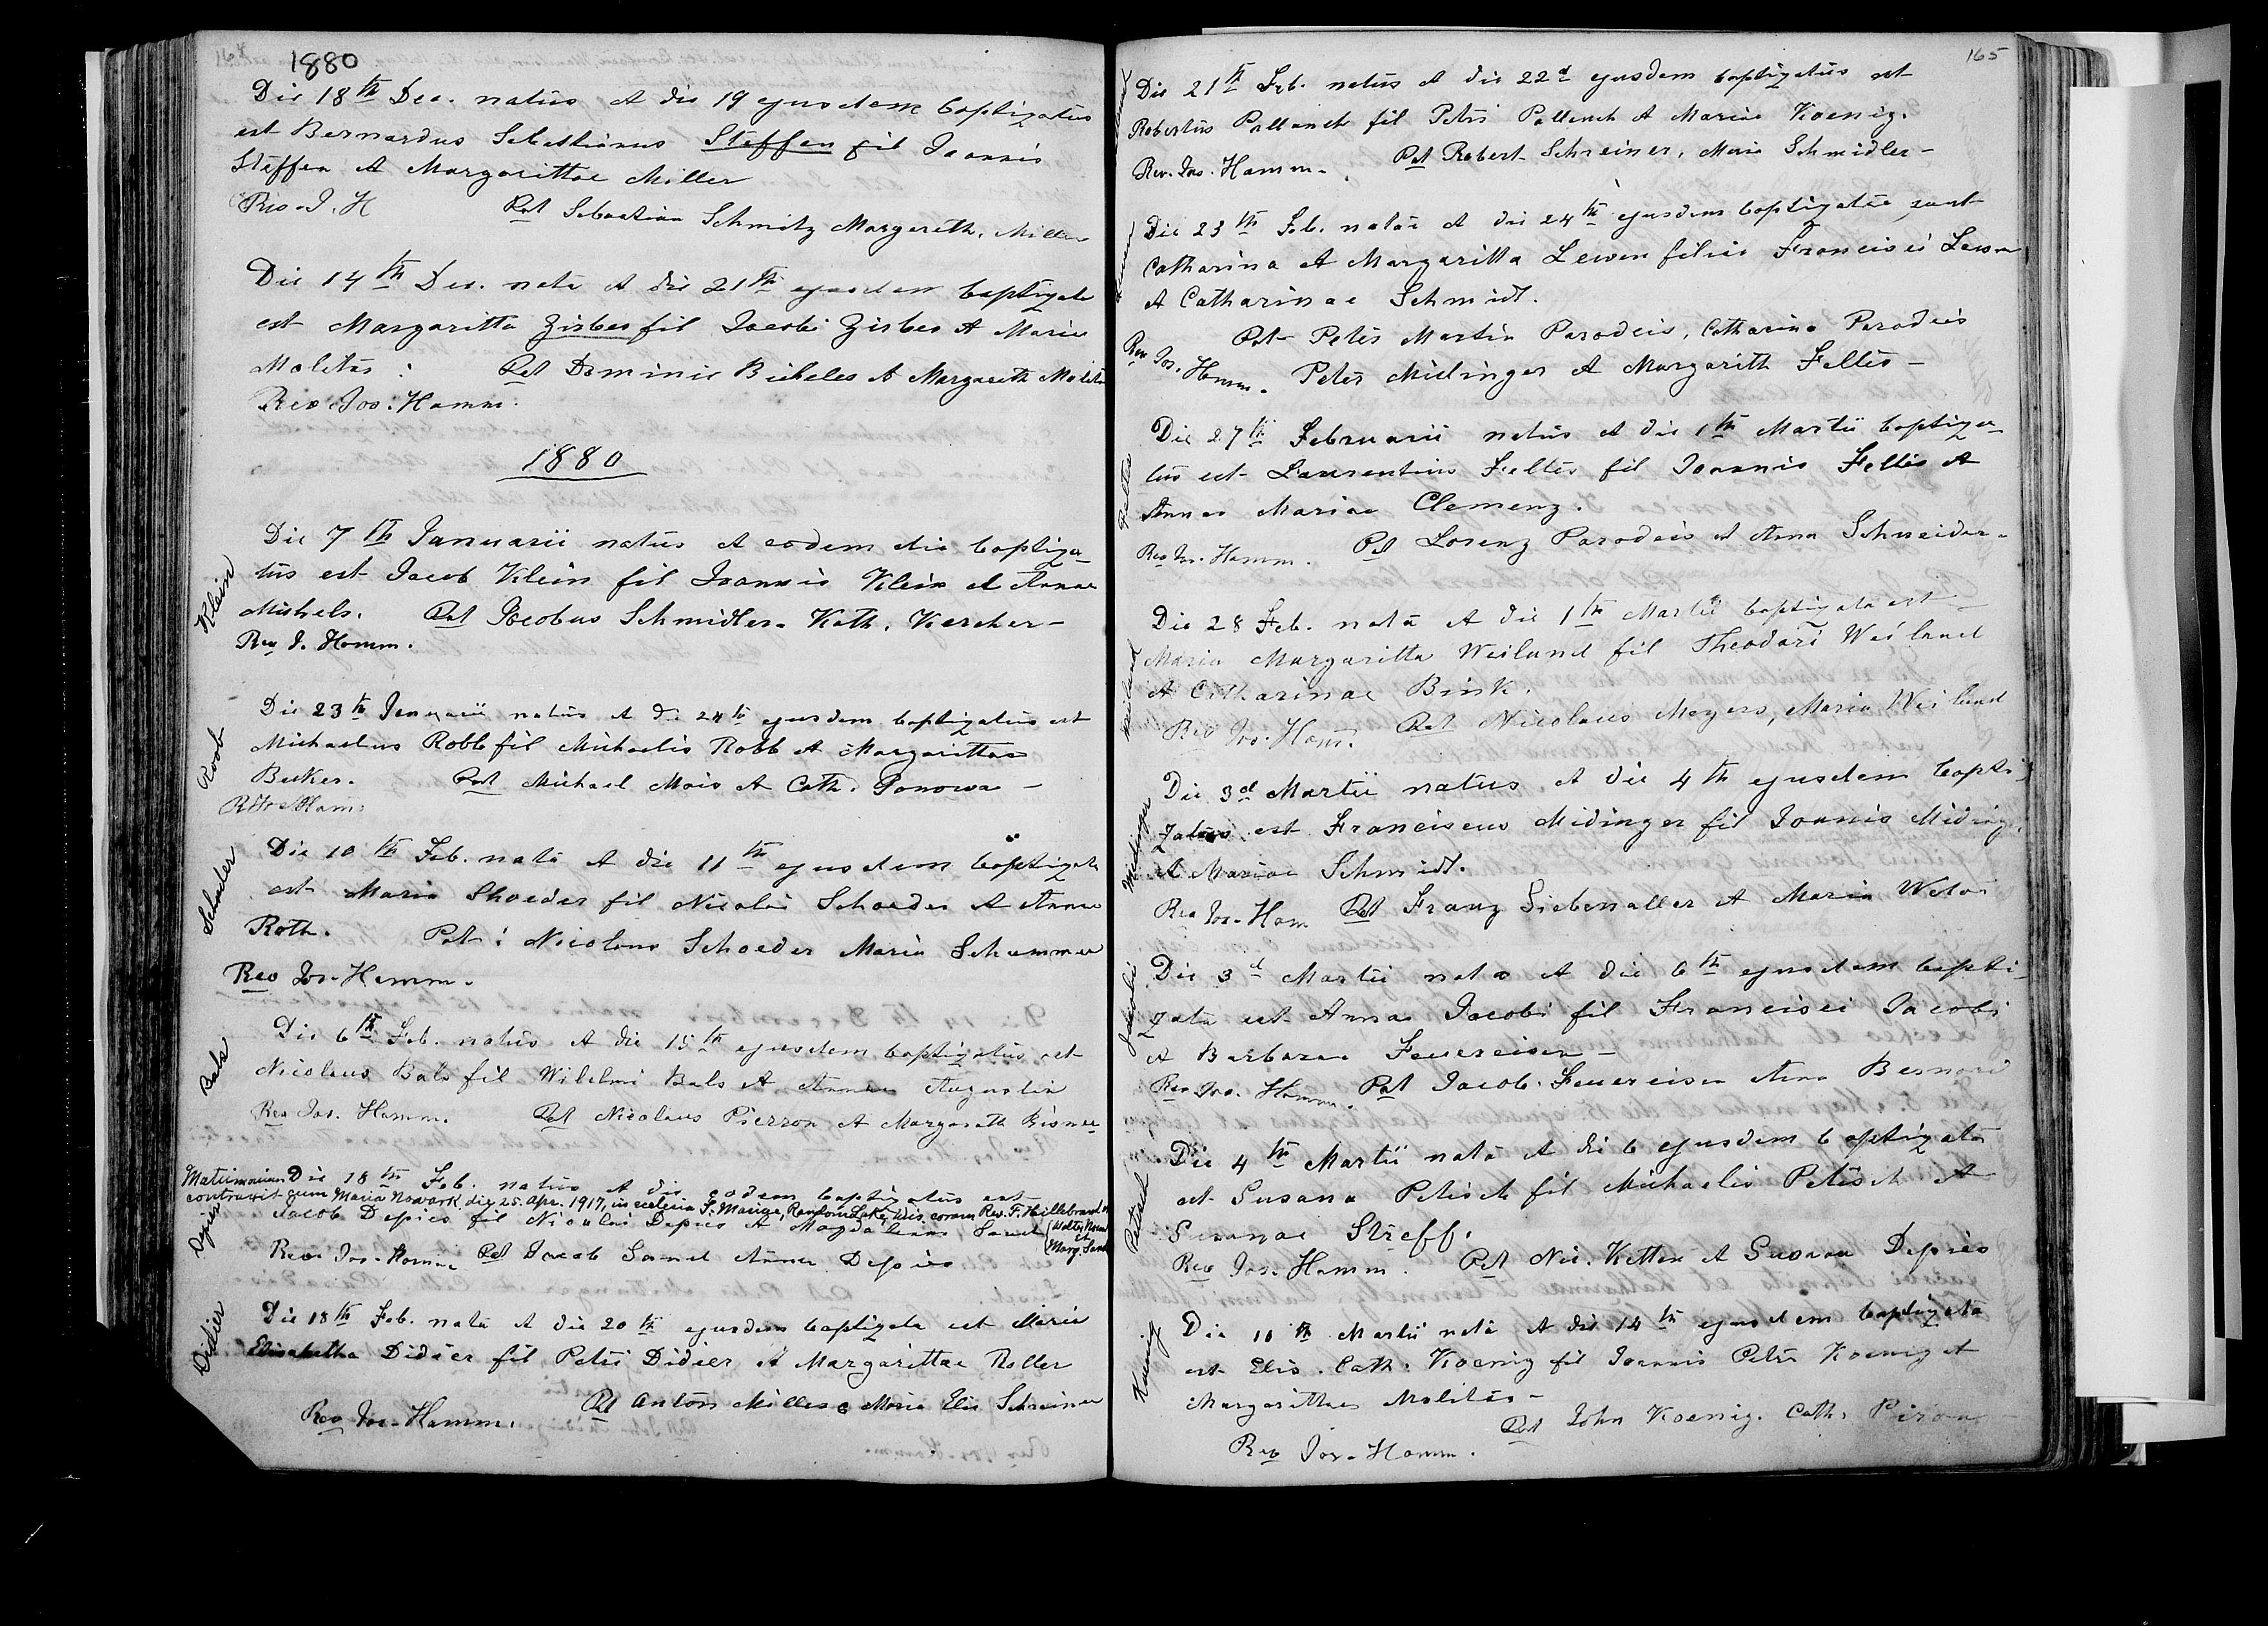 164
1880
Die 18th Dec. natus et die 19 ejusdem baptizatus
est Bernardus Sebastianus Steffen fil Joannis
Steffen et Margarittae Miller
Rev. J. H Pat Sebastian Schmitz Margareth. Miller
Die 14th Dec. nata et die 21th ejusdem baptizata
est Margaritta Zirbes fil Jacobi Zirbes et Maria
Molitus : Pat Dominic Bickeles et Margareth Molitus
Rev Jos. Hamm.
1880
Klein
Die 7th Januarii natus et eodem die baptiza-
tus est Jacob Klein fil Joannis Klein et Annae
Michels. Pat Jacobus Schmidler. Kath. Kercher-
Rev J. Hamm.
Roob
Die 23th Januarii natus et die 24th ejusdem baptizatus est
Michaelus Robb fil Michaelis Robb et Margarittae
Beeker. Pat Michael Mois et Cath. Ponowa -
Rev Jos Ham.
Schoder
Die 10th Feb. nata et die 11th ejusdem baptizata
est Maria Shoeder fil Nicolai Schoeder et Annae
Roth. Pat : Nicolaus Schoeder Maria Schummer
Rev Jos. Hamm.
Bals
Die 6th Feb. natus et die 15th ejusdem baptizatus est
Nicolaus Bals fil Wilelmi Bals et Annae Augustin
Rev Jos. Hamm. Pat Nicolaus Pierron et Margareth Bisnee
Depies
Matrimonium Die 18th Feb. natus et die eodem baptizatus est
contraxit cum Maria Nowark, die 25. Apr. 1917, in ecclesia S. Mariae, Random Lake, Wis. coram Rev. F. Hillebrand et
Jacob Depies fil Nicolai Depies et Magdalenae Sand (Walty Nowark et
Rev Jos. Hamm Pat Jacob Sand Anna Depies Marg. Sand
Didier
Die 18th Feb. nata et die 20th ejusdem baptizata est Maria
Elisabetha Didier fil Petri Didier et Margarittae Roller
Pat Anton Miller & Maria Elis Schreiner
Rev Jos. Hamm.
165
Die 21th Feb. natus et die 22d ejusdem baptizatus est
Robertus Pallanch fil Petri Pallanch et Mariae Koenig.
Rev. Jos. Hamm. Pat Robert Schreiner, Maria Schmidler -
Die 23th Feb. natae et die 24th ejusdem baptizatae sunt
Catharina et Margaritta Lewen filiae Francisci Lewen
et Catharinae Schmidt.
Pat Peter Martin Paradeis, Catharina Paradeis
Rev Jos. Hamm. Peter Midinger et Margarith Feltes -
Feltes
Die 27th Februarii natus et die 1th Martii baptiza-
tus est Laurentius Feltes fil Joannis Feltes et
Annae Mariae Clemenz.
Rev Jos. Hamm. Pat Lorenz Paradeis et Anna Schneider.
Weiland
Die 28 Feb. nata et die 1th Martii baptizata est
Maria Margaritta Weiland fil Theodori Weiland
et Catharinae Bink.
Rev Jos. Ham. Pat Nicolaus Meyers, Maria Weiland
Midinger
Die 3d Martii natus et die 4th ejusdem bapti-
zatus est Franciscus Midinger fil Joannis Miding.
et Mariae Schmidt.
Rev Jos. Ham Pat Franz Siebenaller et Maria Weta
Jakobi
Die 3d Martii nata et die 6th ejusdem bapti-
zata est Anna Jacobi fil Francisci Jacobi
et Barbarae Feuereisen -
Rev Jos. Hamm. Pat Jacob Feuereisen Anna Bernard
Petesch
Die 4th Martii nata et die 6 ejusdem baptizata
est Susana Petesch fil Michaelis Petesch et
Susanae Streff.
Rev Jos. Hamm. Pat Nic. Ketten et Susana Depies
Koenig
Die 10th Martii nata et die 14th ejusdem baptizata
est Elis. Cath. Koenig fil Joannis Petri Koenig et
Margarithae Molitus -
Pat John Koenig. Cath. Piron
Rev Jos. Hamm.